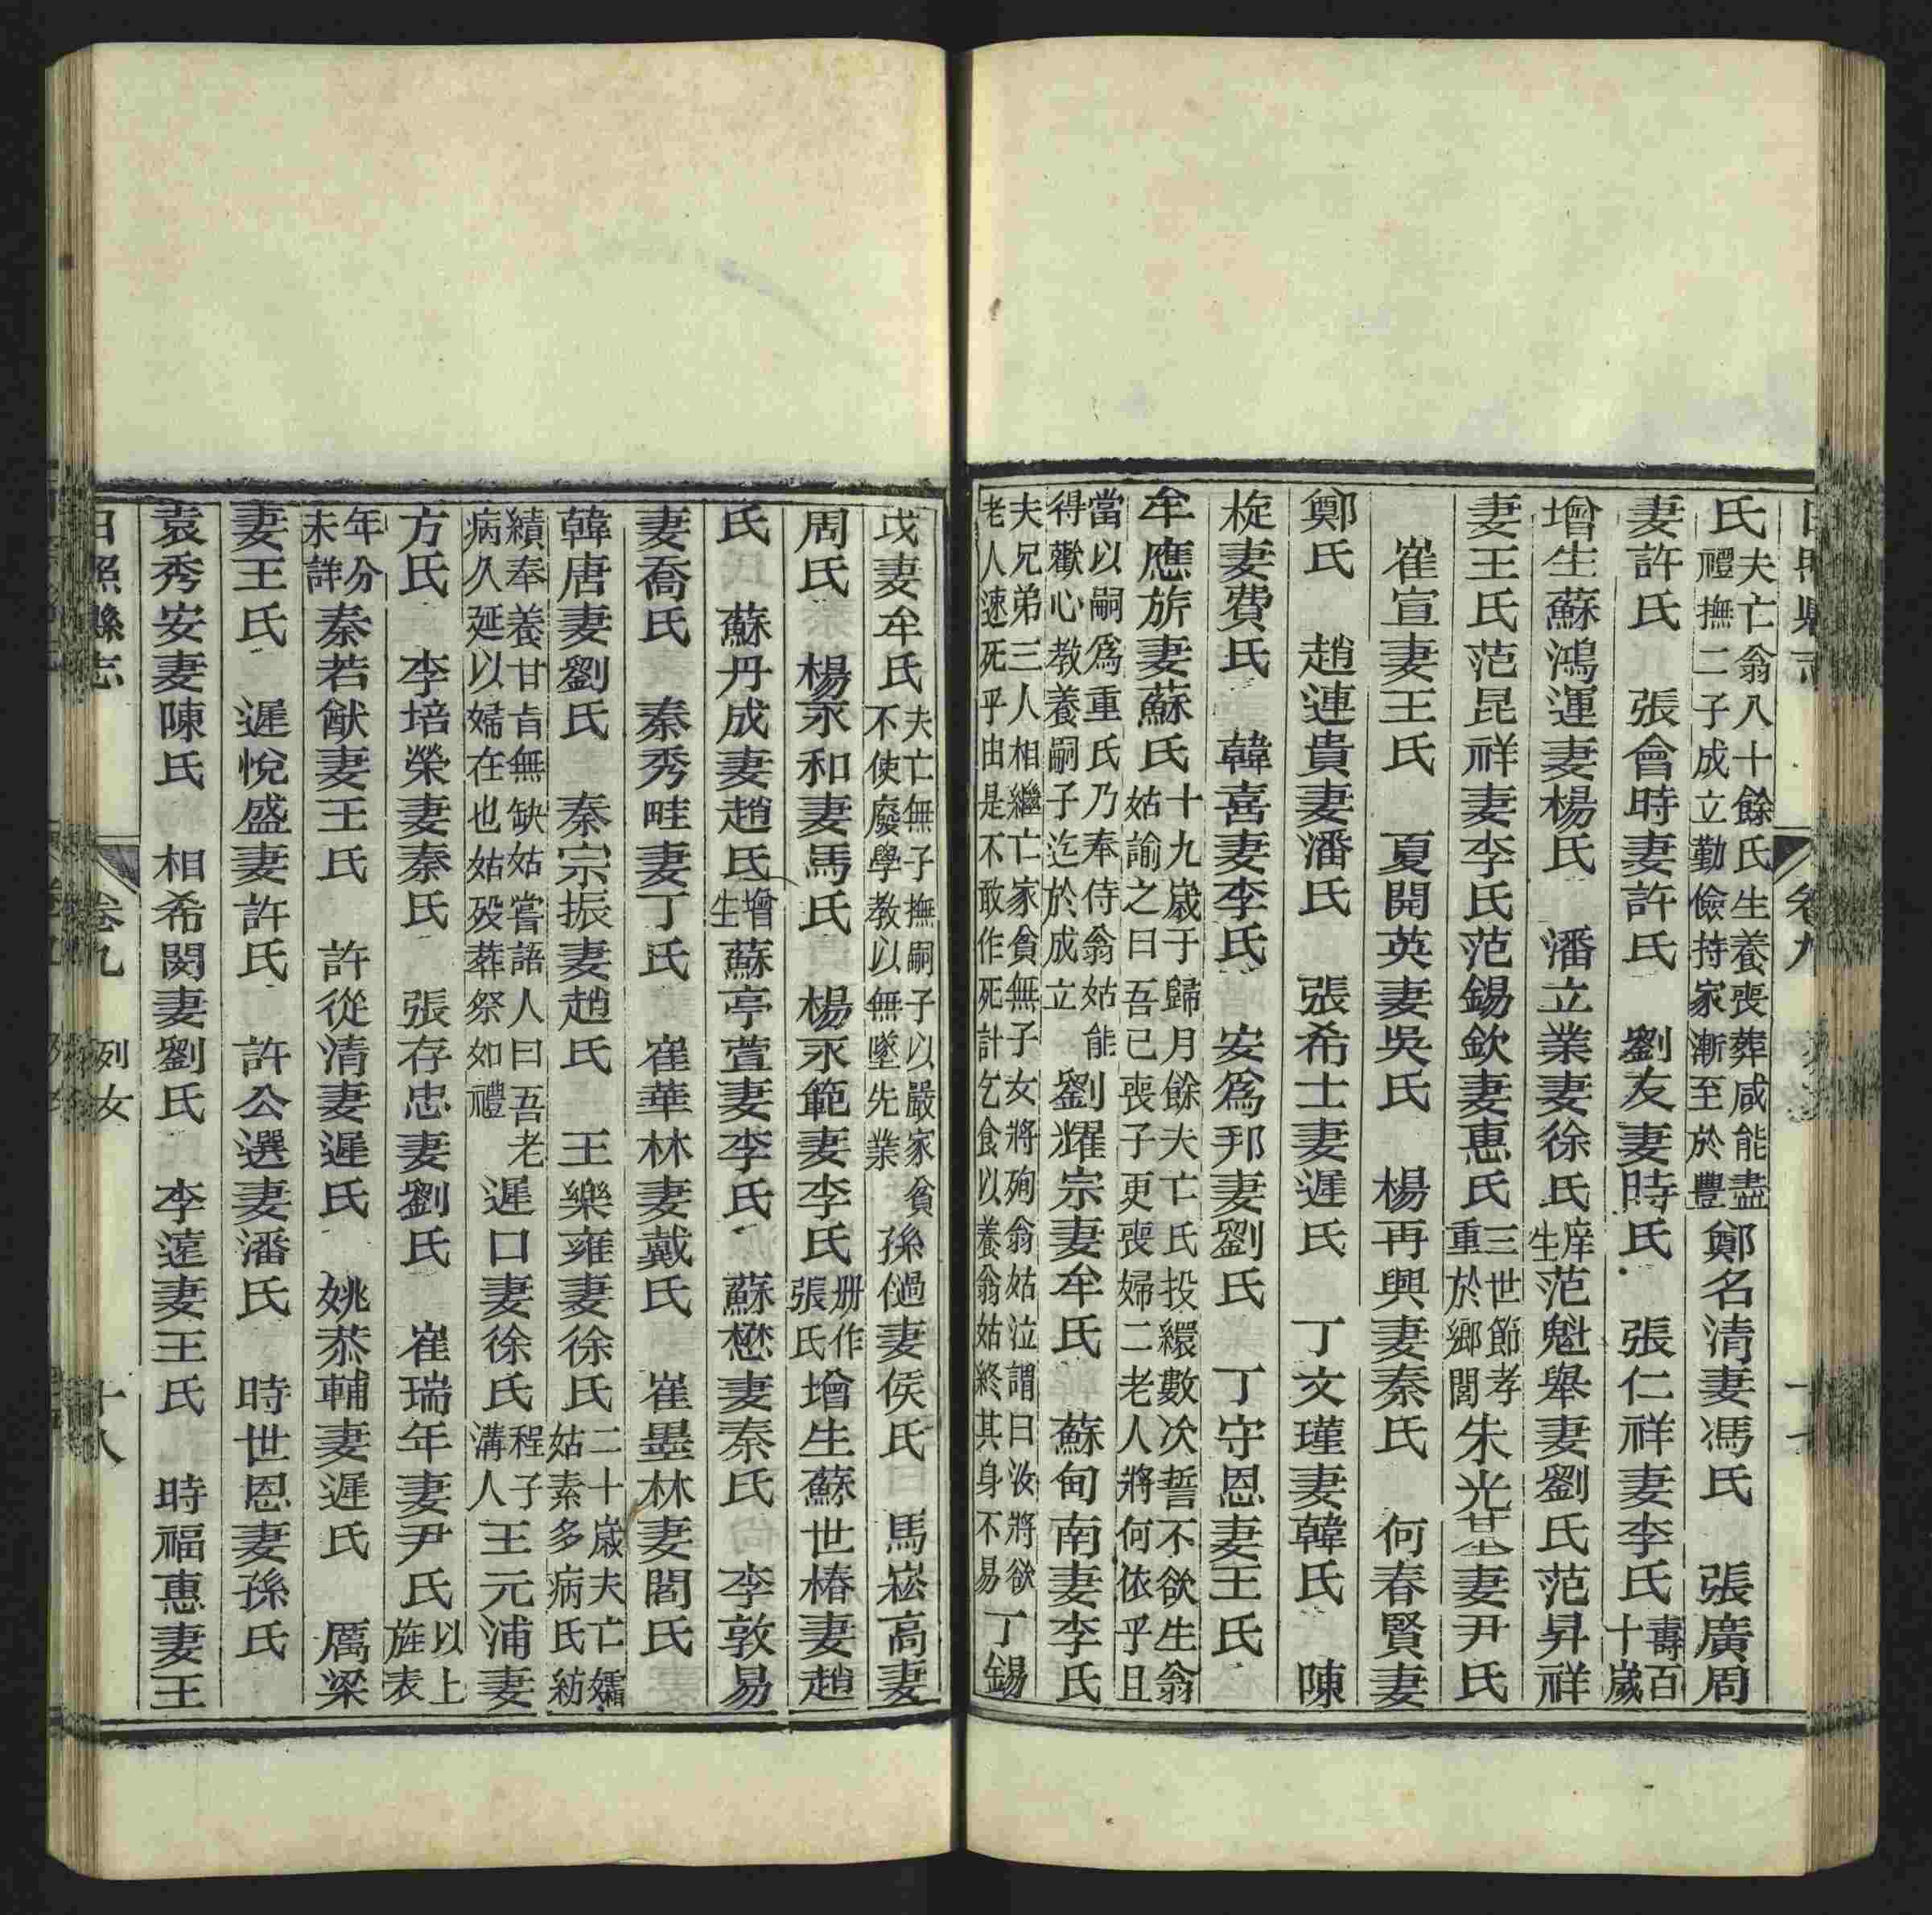 日照縣志 卷九
氏夫亡翁八十餘氏生養喪葬咸能盡禮撫二子成立勤儉持家漸至於豐 鄭名清妻馮氏 張廣周
妻許氏 張會時妻許氏 劉友妻時氏 張仁祥妻李氏壽百十歲
增生蘇鴻運妻楊氏 潘立業妻徐氏庠生范魁舉妻劉氏范昇祥
妻王氏范昆祥妻李氏范錫欽妻惠氏三世節孝重於鄉閭朱光基妻尹氏
崔宣妻王氏 夏開英妻吳氏 楊再興妻秦氏 何春賢妻
鄭氏 趙連貴妻潘氏 張希士妻遲氏 丁文瑾妻韓氏 陳
椗妻費氏 韓喜妻李氏 安為邦妻劉氏 丁守恩妻王氏
牟應旂妻蘇氏十九歲于歸月餘夫亡氏投繯數次誓不欲生翁姑諭之曰吾已喪子更喪婦二老人將何依乎且
當以嗣為重氏乃奉侍翁姑能得歡心教養嗣子迄於成立 劉耀宗妻牟氏 蘇甸南妻李氏
夫兄弟三人相繼亡家貧無子女將殉翁姑泣謂曰汝將欲老人速死乎由是不敢作死計乞食以養翁姑終其身不易 丁錫
戉妻牟氏夫亡無子撫嗣子以嚴家貧不使廢學教以無墜先業 孫過妻侯氏 馬崧高妻
周氏 楊永和妻馬氏 楊永範妻李氏册作張氏增生蘇世椿妻趙
氏 蘇丹成妻趙氏增生蘇亭萱妻李氏 蘇懋妻秦氏 李敦易
妻喬氏 秦秀畦妻丁氏 崔華林妻戴氏 崔墨林妻閻氏
韓唐妻劉氏 秦宗振妻趙氏 王樂雍妻徐氏二十歲夫亡孀姑素多病氏紡
績奉養甘旨無缺姑嘗語人曰吾老病久延以婦在也姑歿葬祭如禮 遲口妻徐氏程子溝人王元浦妻
方氏 李培榮妻秦氏 張存忠妻劉氏 崔瑞年妻尹氏以上旌表
年分未詳秦若猷妻王氏 許從清妻遲氏 姚恭輔妻遲氏 厲梁
妻王氏 遲悅盛妻許氏 許公選妻潘氏 時世恩妻孫氏
袁秀安妻陳氏 相希閔妻劉氏 李遠妻王氏 時福惠妻王
日照縣志 卷九 列女 十八